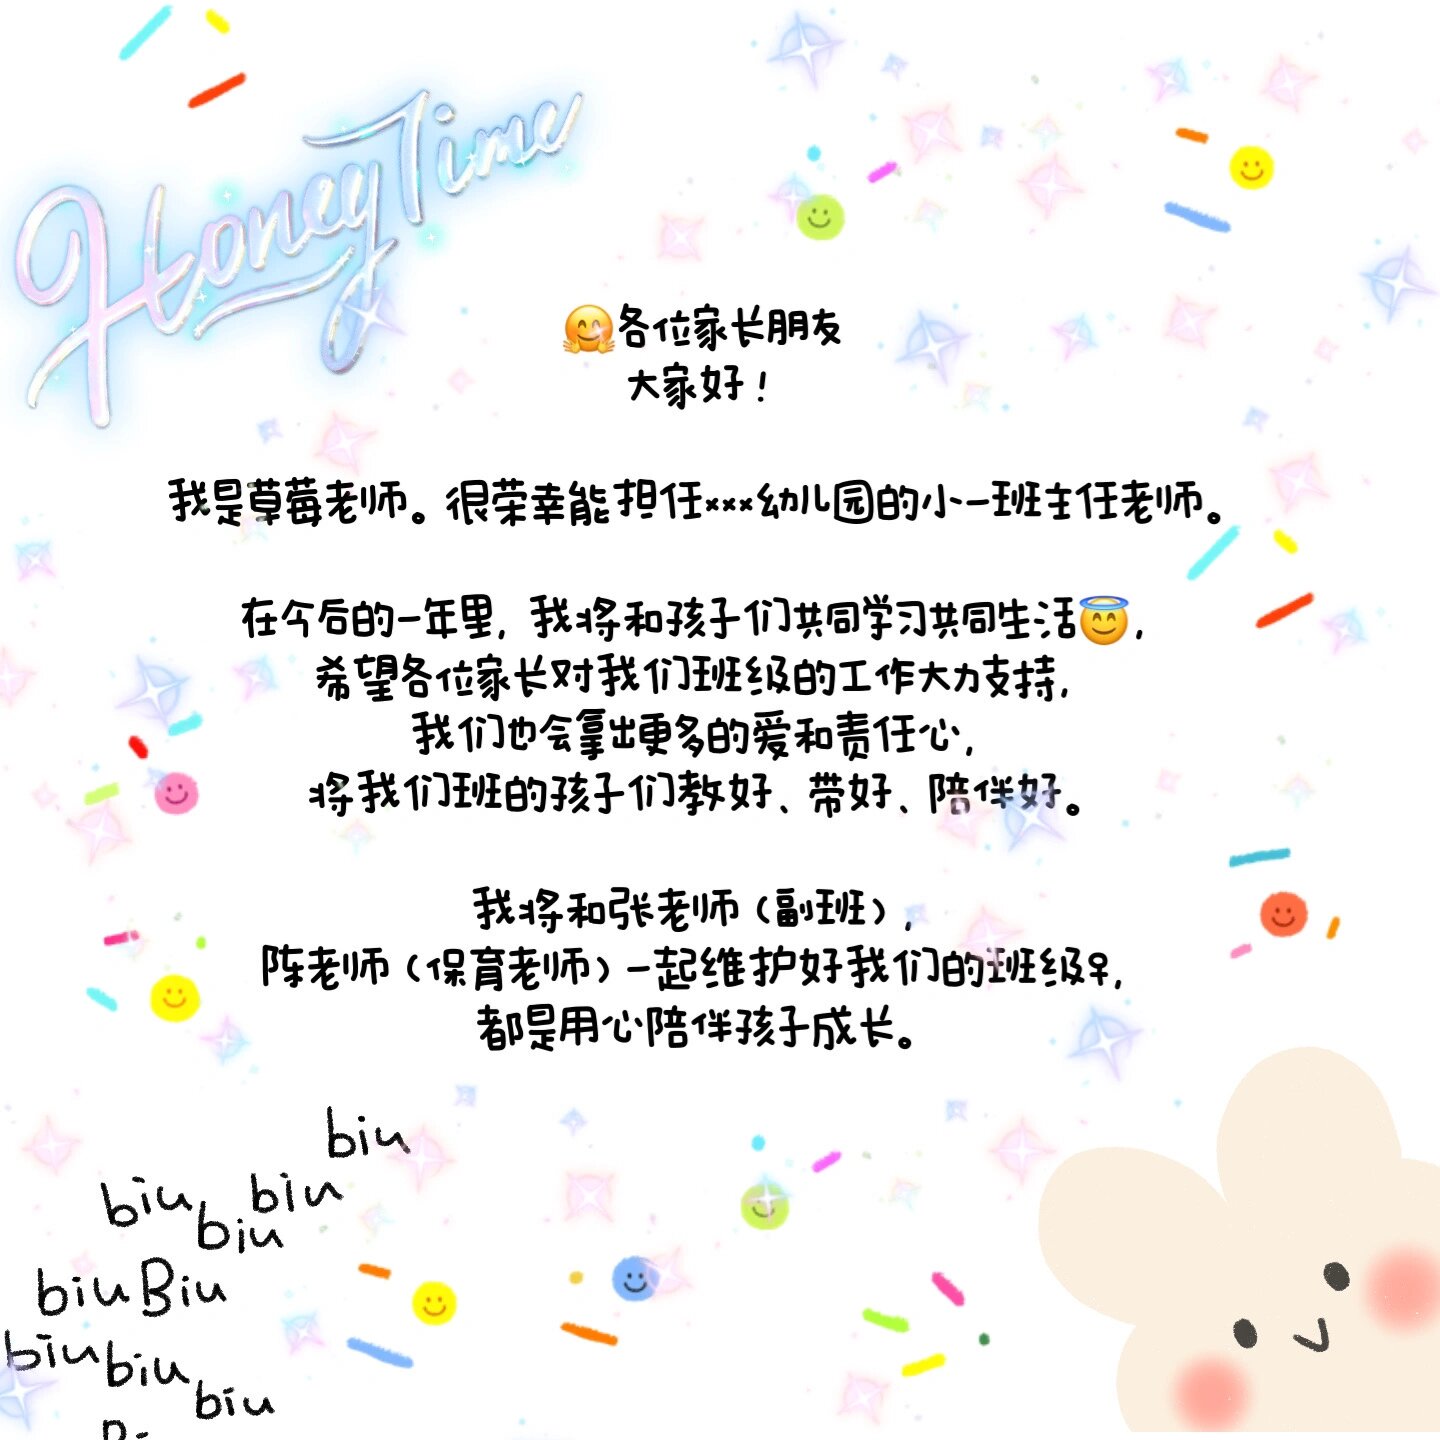 Honey Time
🤗各位家长朋友
大家好！
我是草莓老师。很荣幸能担任×××幼儿园的小一班主任老师。
在今后的一年里，我将和孩子们共同学习共同生活😇，
希望各位家长对我们班级的工作大力支持，
我们也会拿出更多的爱和责任心，
将我们班的孩子们教好、带好、陪伴好。
我将和张老师（副班），
陈老师（保育老师）一起维护好我们的班级♀，
都是用心陪伴孩子成长。
biu
biu biu
biu
biu Biu
biu biu
biu